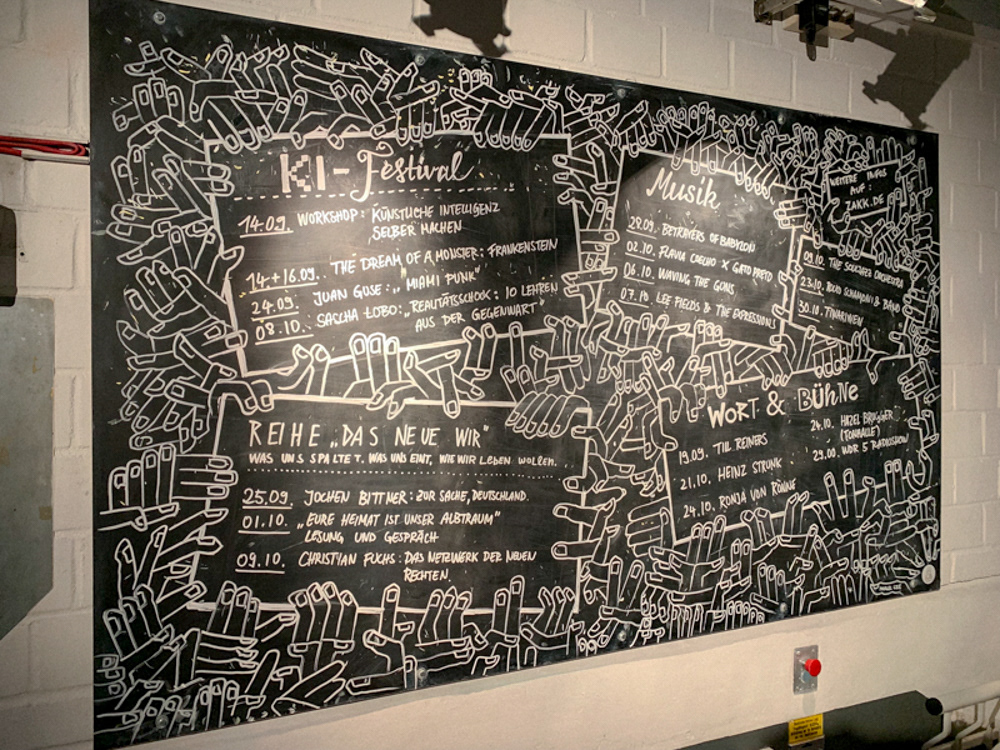 KI-Festival
14.09. WORKSHOP: KÜNSTLICHE INTELLIGENZ
SELBER MACHEN
14.+16.09. THE DREAM OF A MONSTER: FRANKENSTEIN
24.09. JUAN GUSE: „MIAMI PUNK"
08.10. SASCHA LOBO: „REALITÄTSSCHOCK: 10 LEHREN
AUS DER GEGENWART"
REIHE „DAS NEUE WIR"
WAS UNS SPALTET. WAS UNS EINT, WIE WIR LEBEN WOLLEN.
25.09. JOCHEN BITTNER: ZUR SACHE, DEUTSCHLAND.
01.10. „EURE HEIMAT IST UNSER ALBTRAUM"
LESUNG UND GESPRÄCH
09.10. CHRISTIAN FUCHS: DAS NETZWERK DER NEUEN
RECHTEN.
Musik
28.09. BETRAYERS OF BABYLON
02.10. FLAVIA COELHO X GATO PRETO
06.10. WAVING THE GUNS
07.10. LEE FIELDS & THE EXPRESSIONS
WEITERE INFOS
AUF:
ZAKK.DE
09.10. THE SOUTHER ORCHESTRA
23.10. & BAND
30.10. TINARIWEN
WORT & BÜHNE
19.09. TILL REINERS
21.10. HEINZ STRUNK
24.10. RONJA VON RÖNNE
24.10. HAZEL BRUGGER
(TONHALLE)
29.00. WDR 5 RADIOSHOW